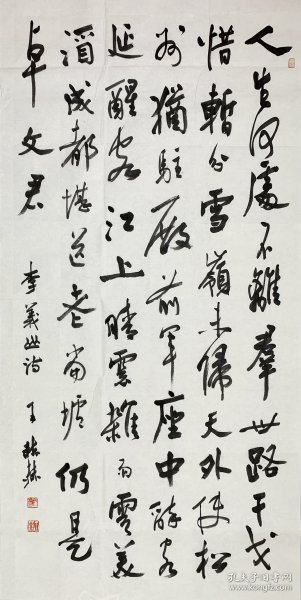 人生何處不離羣世路干戈
惜暫分雪嶺未歸天外使松
州猶駐殿前軍座中醉客
延醒客江上晴雲雜雨雲美
酒成都堪送老當壚仍是
卓文君
李義山詩
孔夫子旧书网